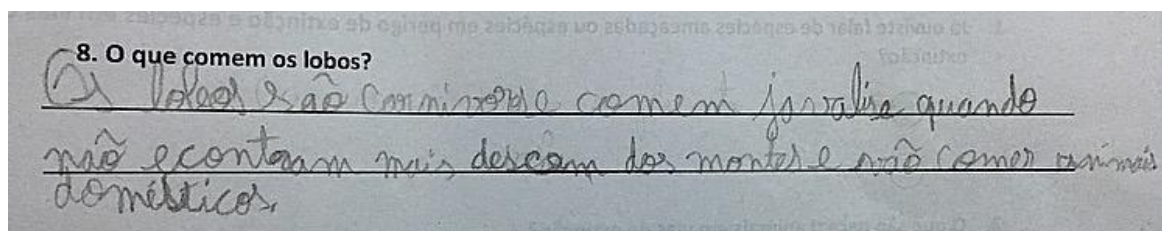 8. O que comem os lobos?
Os lobos são carnivoros e comem javalis e quando
não econtram mais descem dos montes e vão comer animais
domésticos.